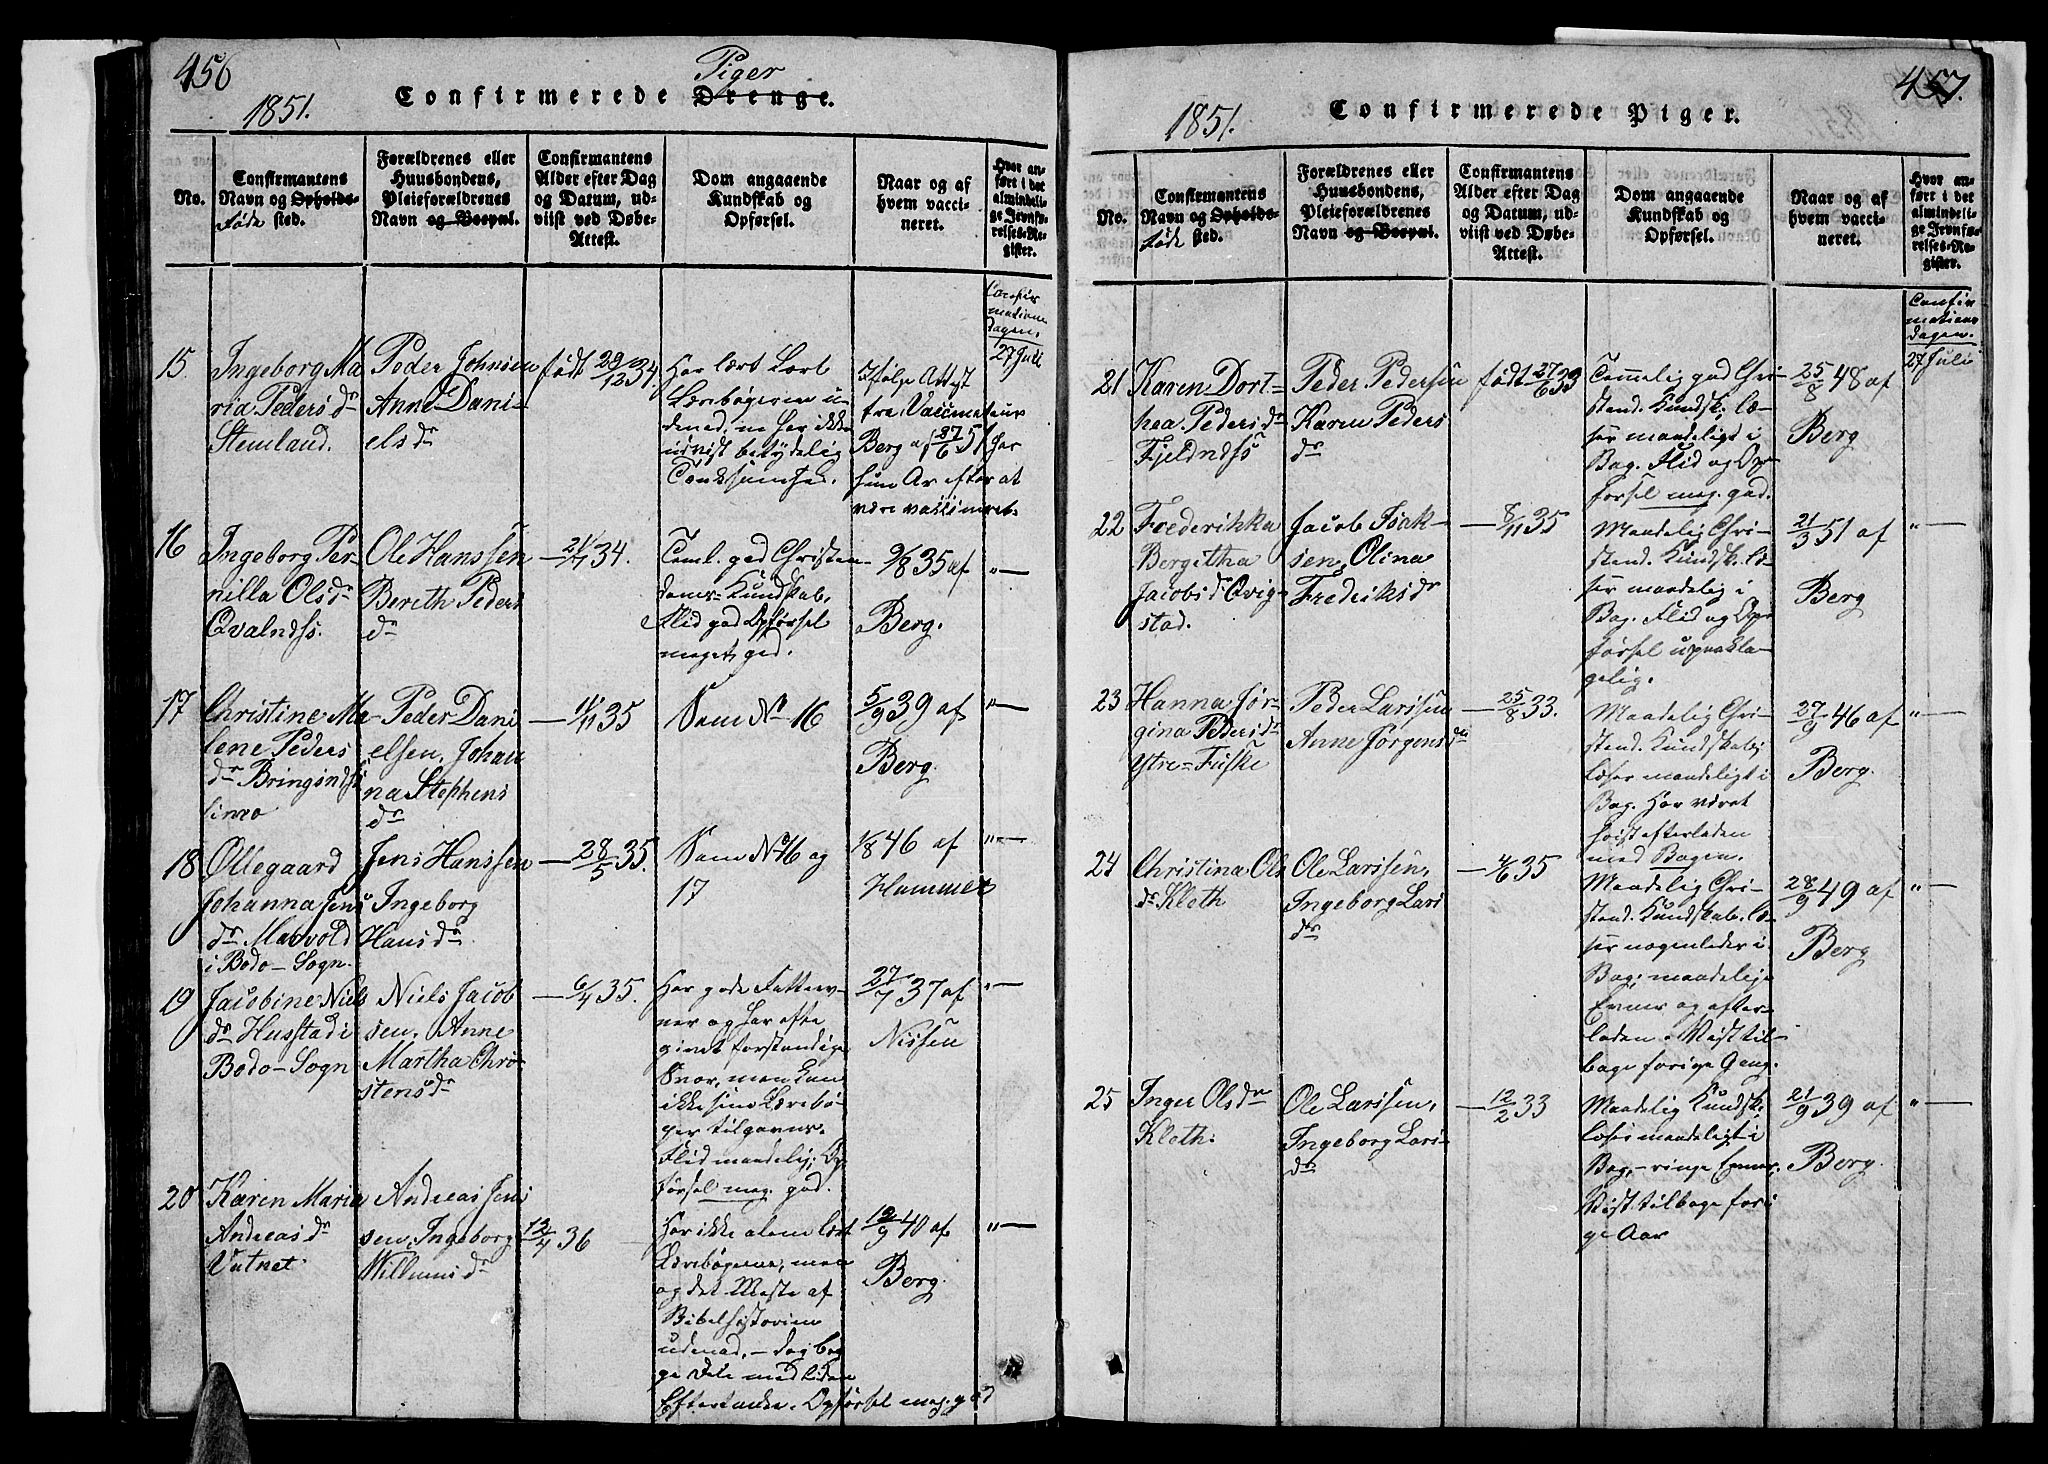 456
Piger
1851.
Confirmerede Drenge.
No.
Confirmantens
Navn og Opholds-
føde sted.
Forældrenes eller
Huusbondens,
Pleieforældrenes
Navn og Boepæl.
Confirmantens
Alder efter Dag
og Datum, ud-
viist ved Døbe-
Attest.
Dom angaaende
Kundskab og
Opførsel.
Naar og af
hvem vacci-
neret.
Hvor an-
ført i det
almindeli-
ge Jevnfø-
relses-Re-
gister.
Confir
mations
dagen.
27 Juli
15
Ingeborg Ma
ria Peders dr
Stemland.
Peder Johnsen
Anne Dani-
els dr
født 29/12 34.
Har lært
Lærebøgerne u-
denad,
udvist betydelig
Ifølge Attest
fra Vaccinateur
Berg af
har
hun Ar efter at
være vaccineret.
16
Ingeborg Per-
nilla Olsdr
Qvalndss.
Ole Hanssen
Bereth Peders
dr
Teml. god Christen-
doms-Kundskab,
Flid god Opførsel
meget god.
9/8 35 af
Berg.
"—
17
Christine Ma-
lene Peders
dr Bringsndss
limo
Peder Dani
elsen, Johan
na Stephens
dr
— 11/11 35
Som No 16
5/9 39 af
Berg.
"—
18
Ollegaard
Johanna Jens
dr Marvold
i Bodo-Sogn.
Jens Hanssen
Ingeborg
Hansdr
— 28/5 35.
Som No 16 og
17
1/8 46 af
Hammer
"—
19
Jacobine Niels
dr Husstad i
Bodo-Sogn
Niels Jacob
sen, Anne
Martha Chri
stensdr
— 6/4 35.
Har gode Fatteev-
ner og har ofte
givet forstandige
Svar, men kan
ikke sine Lærebø-
ger tilgavns.
Flid maadelig; Op-
førsel meg. god.
27/7 37 af
Nissen
"—
20
Karen Maria
Andreas dr
Vatnet.
Andreas Jens
sen, Ingeborg
Willums dr
12/4 36
Har ikke alene lært
Lærebøgerne, men
og det Meste af
Bibelhistorien
udenad, – dog beg
ge Dele med liden
Eftertanke. Opførsel meg. god
12/9 40 af
Berg.
"—
457.
1851.
Confirmerede Piger.
No.
Confirmantens
Navn og Opholds-
føde sted.
Forældrenes eller
Huusbondens,
Pleieforældrenes
Navn og Boepæl.
Confirmantens
Alder efter Dag
og Datum, ud-
viist ved Døbe-
Attest.
Dom angaaende
Kundskab og
Opførsel.
Naar og af
hvem vacci-
neret.
Hvor an-
ført i det
almindeli-
ge Jevnfø-
relses-Re-
gister.
Confir
mations
dagen.
27 Juli
21
Karen Dort-
hea Peders dr
Fjeldndss
Peder Pedersen
Karen Peders
dr
født 27/6 33
Temmelig god Chri-
stend. Kundsk; læ-
ser maadeligt i
Bog. Flid og Op-
førsel meg. god.
25/8 48 af
Berg
22
Frederikka
Bergitha
Jacobs dr Qvig-
stad.
Jacob Isak-
sen, Olina
Frederiksdr
— 8/11 35
Maadelig Chri-
stend. Kundsk. læ-
ser maadelig i
Bog. Flid og Op-
førsel upaakla-
gelig.
21/3 51 af
Berg
"—
23
Hanna Jør-
gina Peders dr
Ytre-Fiske
Peder Larssen
Anne Jørgensdr
— 25/8 33.
Maadelig Chri-
stend. Kundskab;
læser maadeligt i
Bog. Har været
høist efterladen
med Bogen.
27/9 46 af
Berg.
"—
24
Christina Ols
dr Kleth
Ole Larssen,
Ingeborg Lars
dr
— 4/6 35
Maadelig Chri-
stend. Kundskab. læ-
ser nogenledes i
Bog; maadelige
Evner og efter-
laden. Vist til-
bage forige Gang.
28/9 49 af
Berg
"—
25
Inger Olsdr
Kleth.
Ole Larssen,
Ingeborg Lars
dr
— 12/2 33
Maadelig Kundsk.
læser maadeligt i
Bog, – ringe Evner,
Vist tilbage fori
ge Aar
21/9 39 af
Berg.
"—